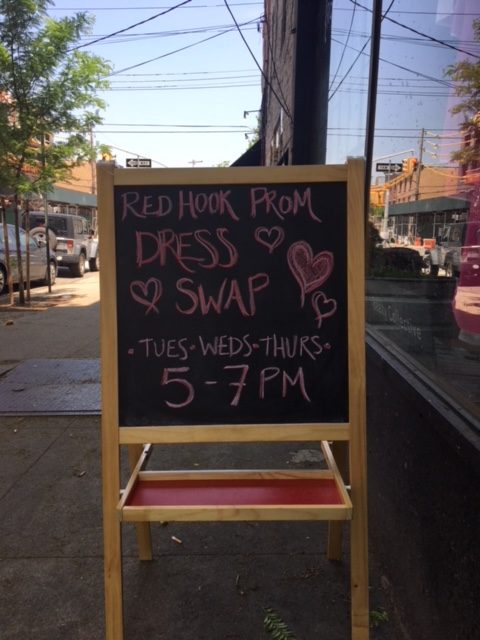 ONE WAY
RED HOOK PROM
DRESS
SWAP
• TUES • WEDS • THURS •
5 - 7 PM